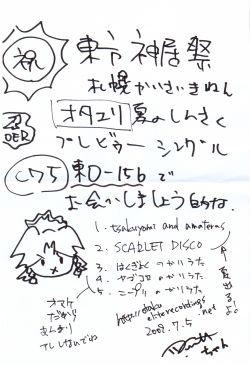 祝
東方神居祭
札幌かいさいきねん
忍 DER
オタユリ 夏のしんさく
プレビュー シングル
C75 東D-15bで
お会いしましょう的な。
1. tsukuyomi and amateras
2. SCARLET DISCO
3. はくぎょくのかりうた
4. ヤゴコロのかりうた
5. ニープルのかりうた
オマケ
だから
あんまり
アレしないでね
http://otaku-eliterecordings.net
2009.7.5
ちゃん